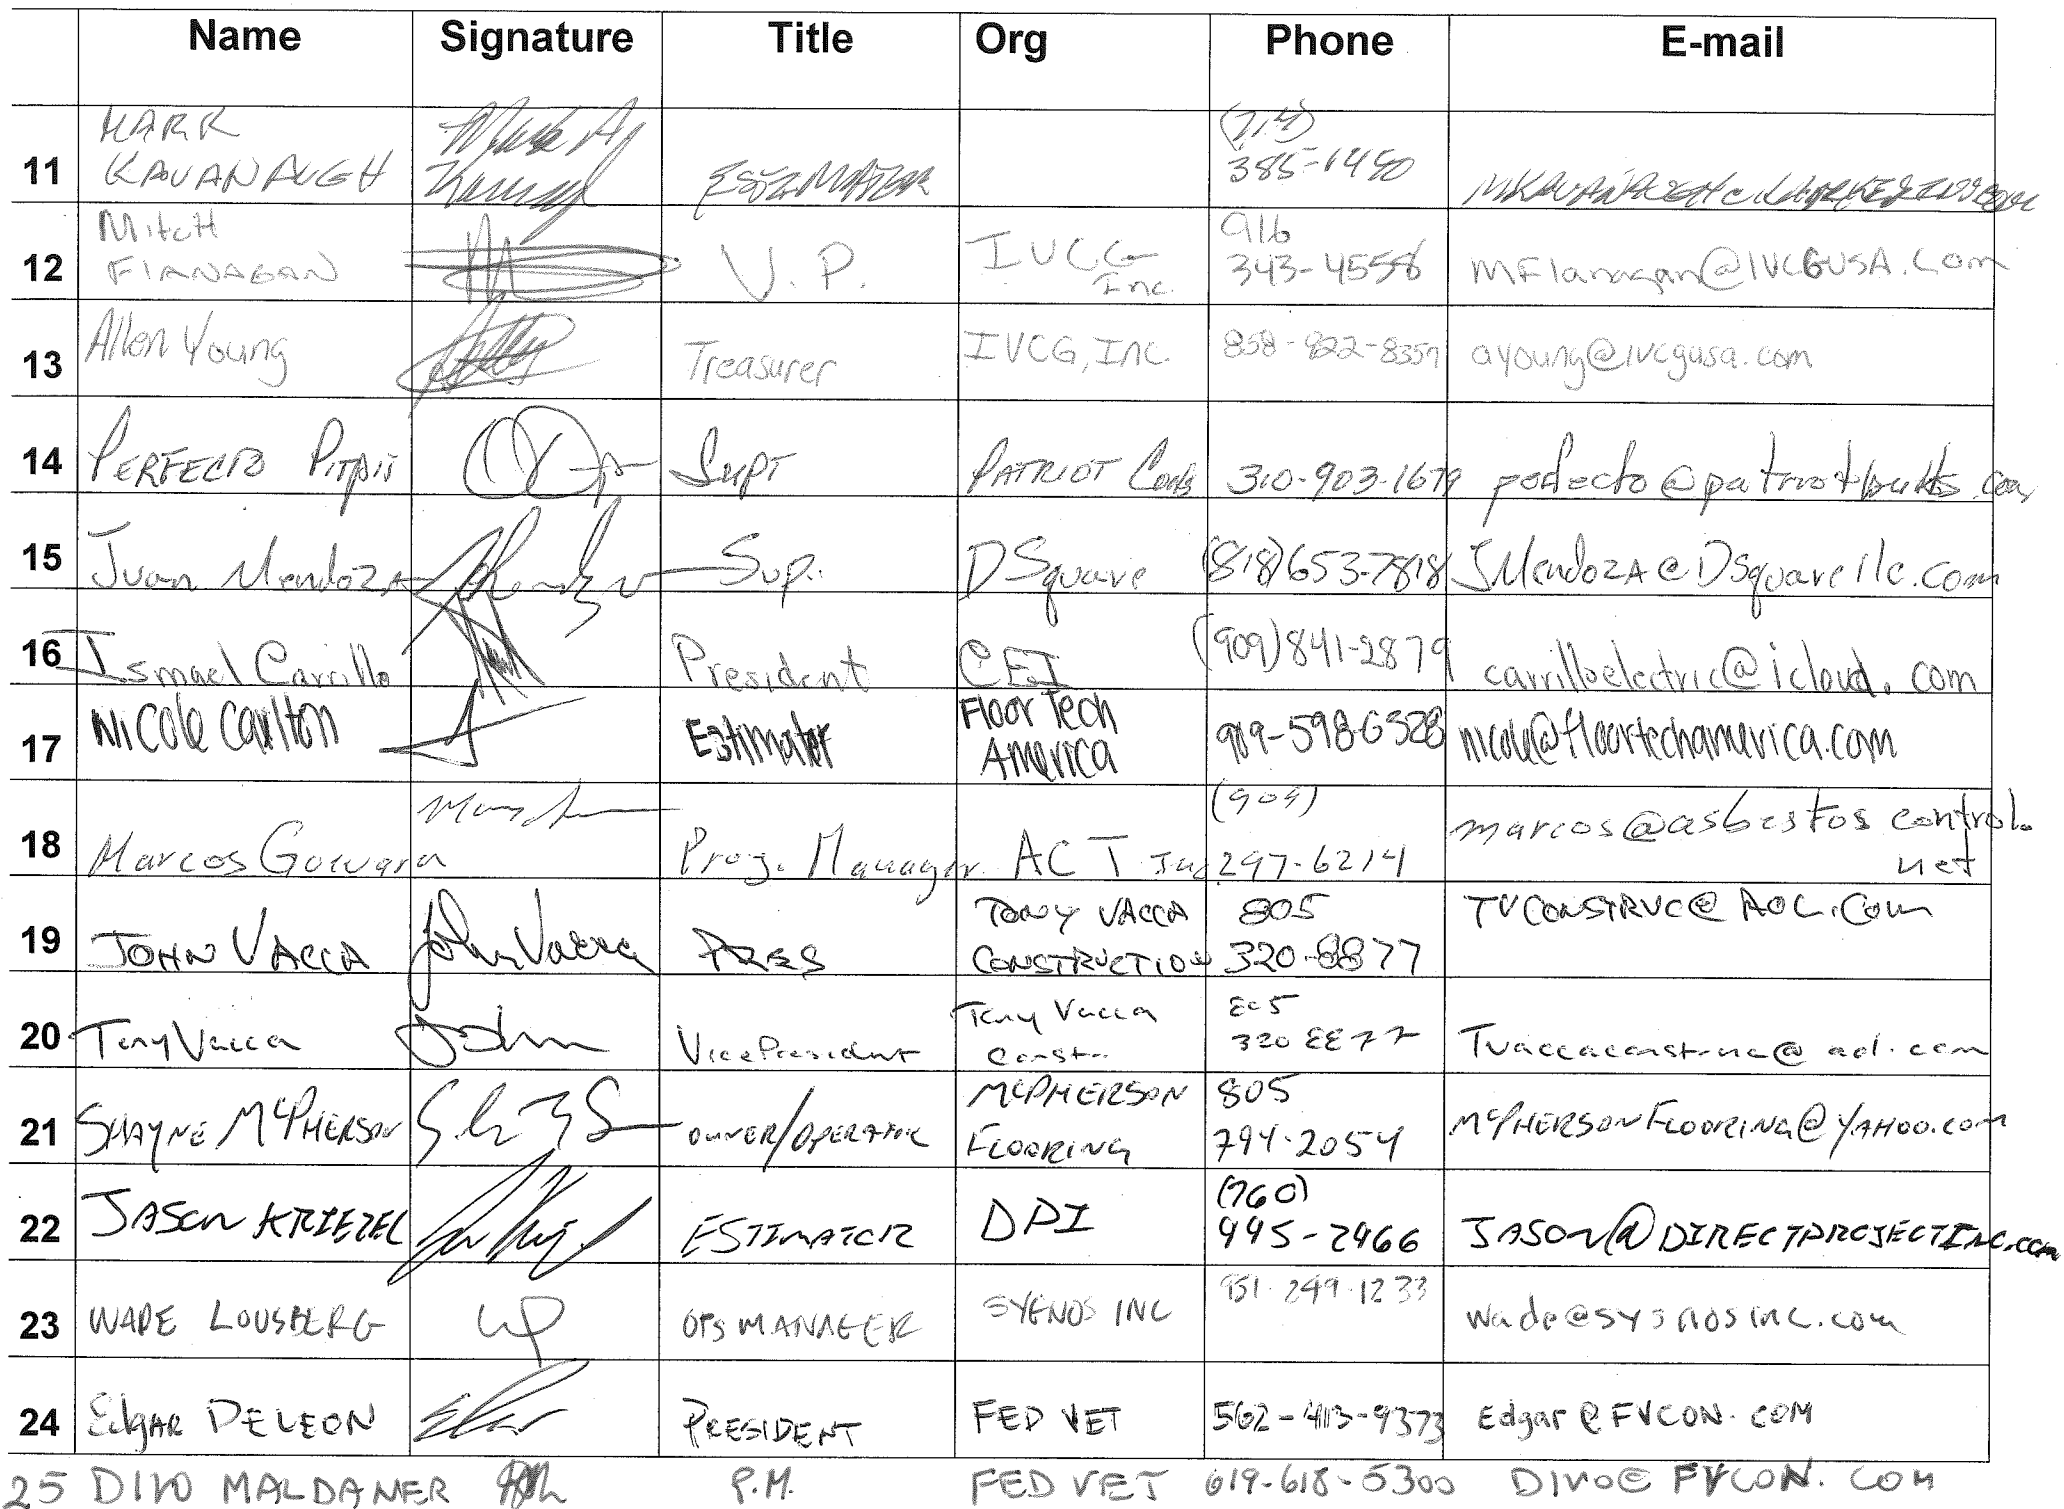 Name Signature Title Org Phone E-mail
11 MARK KAVANAUGH ESTIMATOR (714) 385-1440
12 Mitch Flanagan V.P. IVCG Inc. 916 343-4558 MFlanagan@IVCGUSA.com
13 Allen Young Treasurer IVCG, Inc. 858-922-8357 ayoung@ivcgusa.com
14 PERFECTO Pitpit Supt PATRIOT 310-903-1679
15 Juan Mendoza Sup. DSquare (818)653-7818 JMendoza@DSquarellc.com
16 Ismael Carrillo President CEI (909)841-2879 carrilloelectric@icloud.com
17 Nicole Carlton Estimator Floor Tech America 909-598-6328 nicole@floortechamerica.com
18 Marcos Guevara Proj. Manager ACT Inc (909) 297-6214 marcos@asbestoscontrol.net
19 JOHN VACCA John Vacca PRES TONY VACCA CONSTRUCTION 805 320-8877 TVCONSTRUC@AOL.Com
20 Tony Vacca Vice President Tony Vacca Constr. 805 320 8877 Tvaccaconstruc@aol.com
21 SHAYNE McPHERSON OWNER/OPERATOR McPHERSON FLOORING 805 794-2054 McPHERSONFLOORING@YAHOO.com
22 JASON KRIEZEL ESTIMATOR DPI (760) 445-2466 JASON@DIRECTPROJECTINC.com
23 WADE LOUSBERG OPS MANAGER SYSNOS INC 951-249-1233 wade@sysnosinc.com
24 Edgar DELEON PRESIDENT FED VET 562-413-9373 Edgar@FVCON.COM
25 DIVO MALDANER P.M. FED VET 619-618-5300 DIVO@FVCON.COM